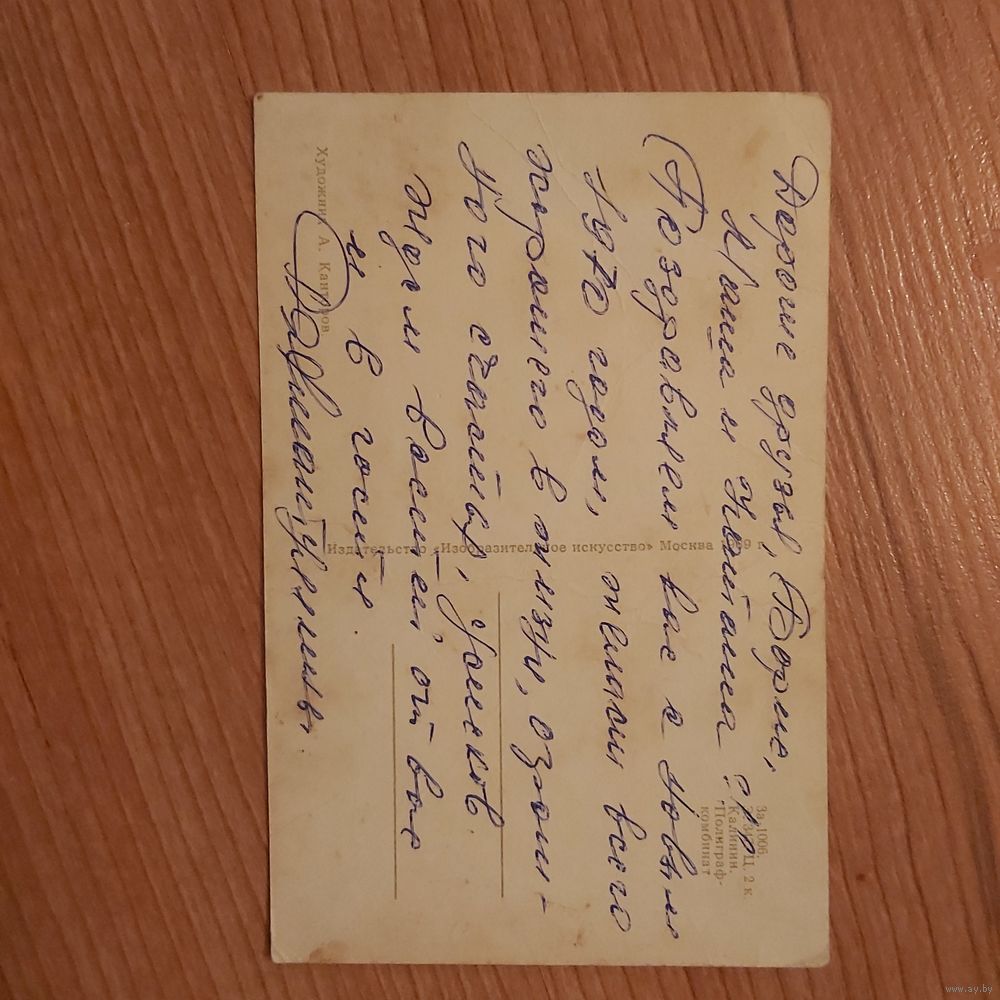 Дорогие друзья, Боря,
Маша и Наташа !!!
Поздравляем вас с Новым
1970 годом, желаем всего
хорошего в жизни, огром-
ного счастья, успехов.
Ждем вестей от вас
и в гости
Художник А. Канторов
Издательство «Изобразительное искусство» Москва 1969 г.
За-1006.
Ц. 2 к.
Калинин.
Полиграф-
комбинат
www.ay.by